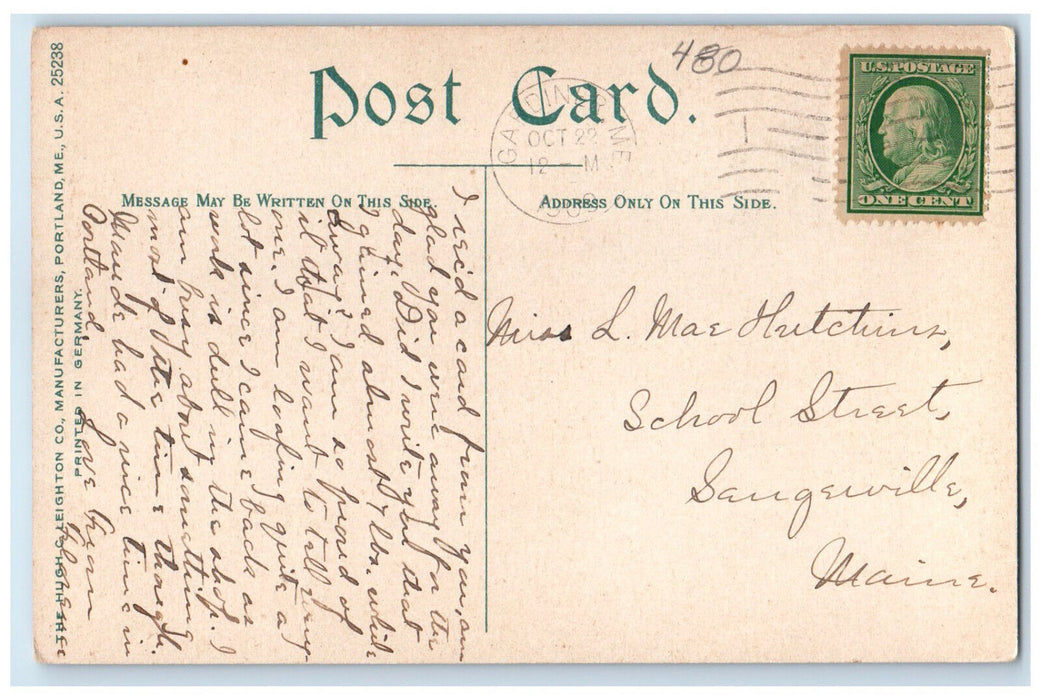 THE HUGH C. LEIGHTON CO., MANUFACTURERS, PORTLAND, ME., U.S.A. 25238
PRINTED IN GERMANY.
Post Card.
480
GARDINER ME
OCT 22
12 - M
U.S. POSTAGE
ONE CENT
MESSAGE MAY BE WRITTEN ON THIS SIDE.
ADDRESS ONLY ON THIS SIDE.
I rec'd a card from you, am
glad you were away for the
day. Did I write you that
I gained almost 7 lbs. while
away? I am so proud of
it that I want to tell every
one. I am loafing quite a
lot since I came back as
work is dull in the shop. I
am busy about something
most of the time though.
Maude had a nice time in
Portland.
Love from
Miss L. Mae Hutchins,
School Street,
Sangerville,
Maine.